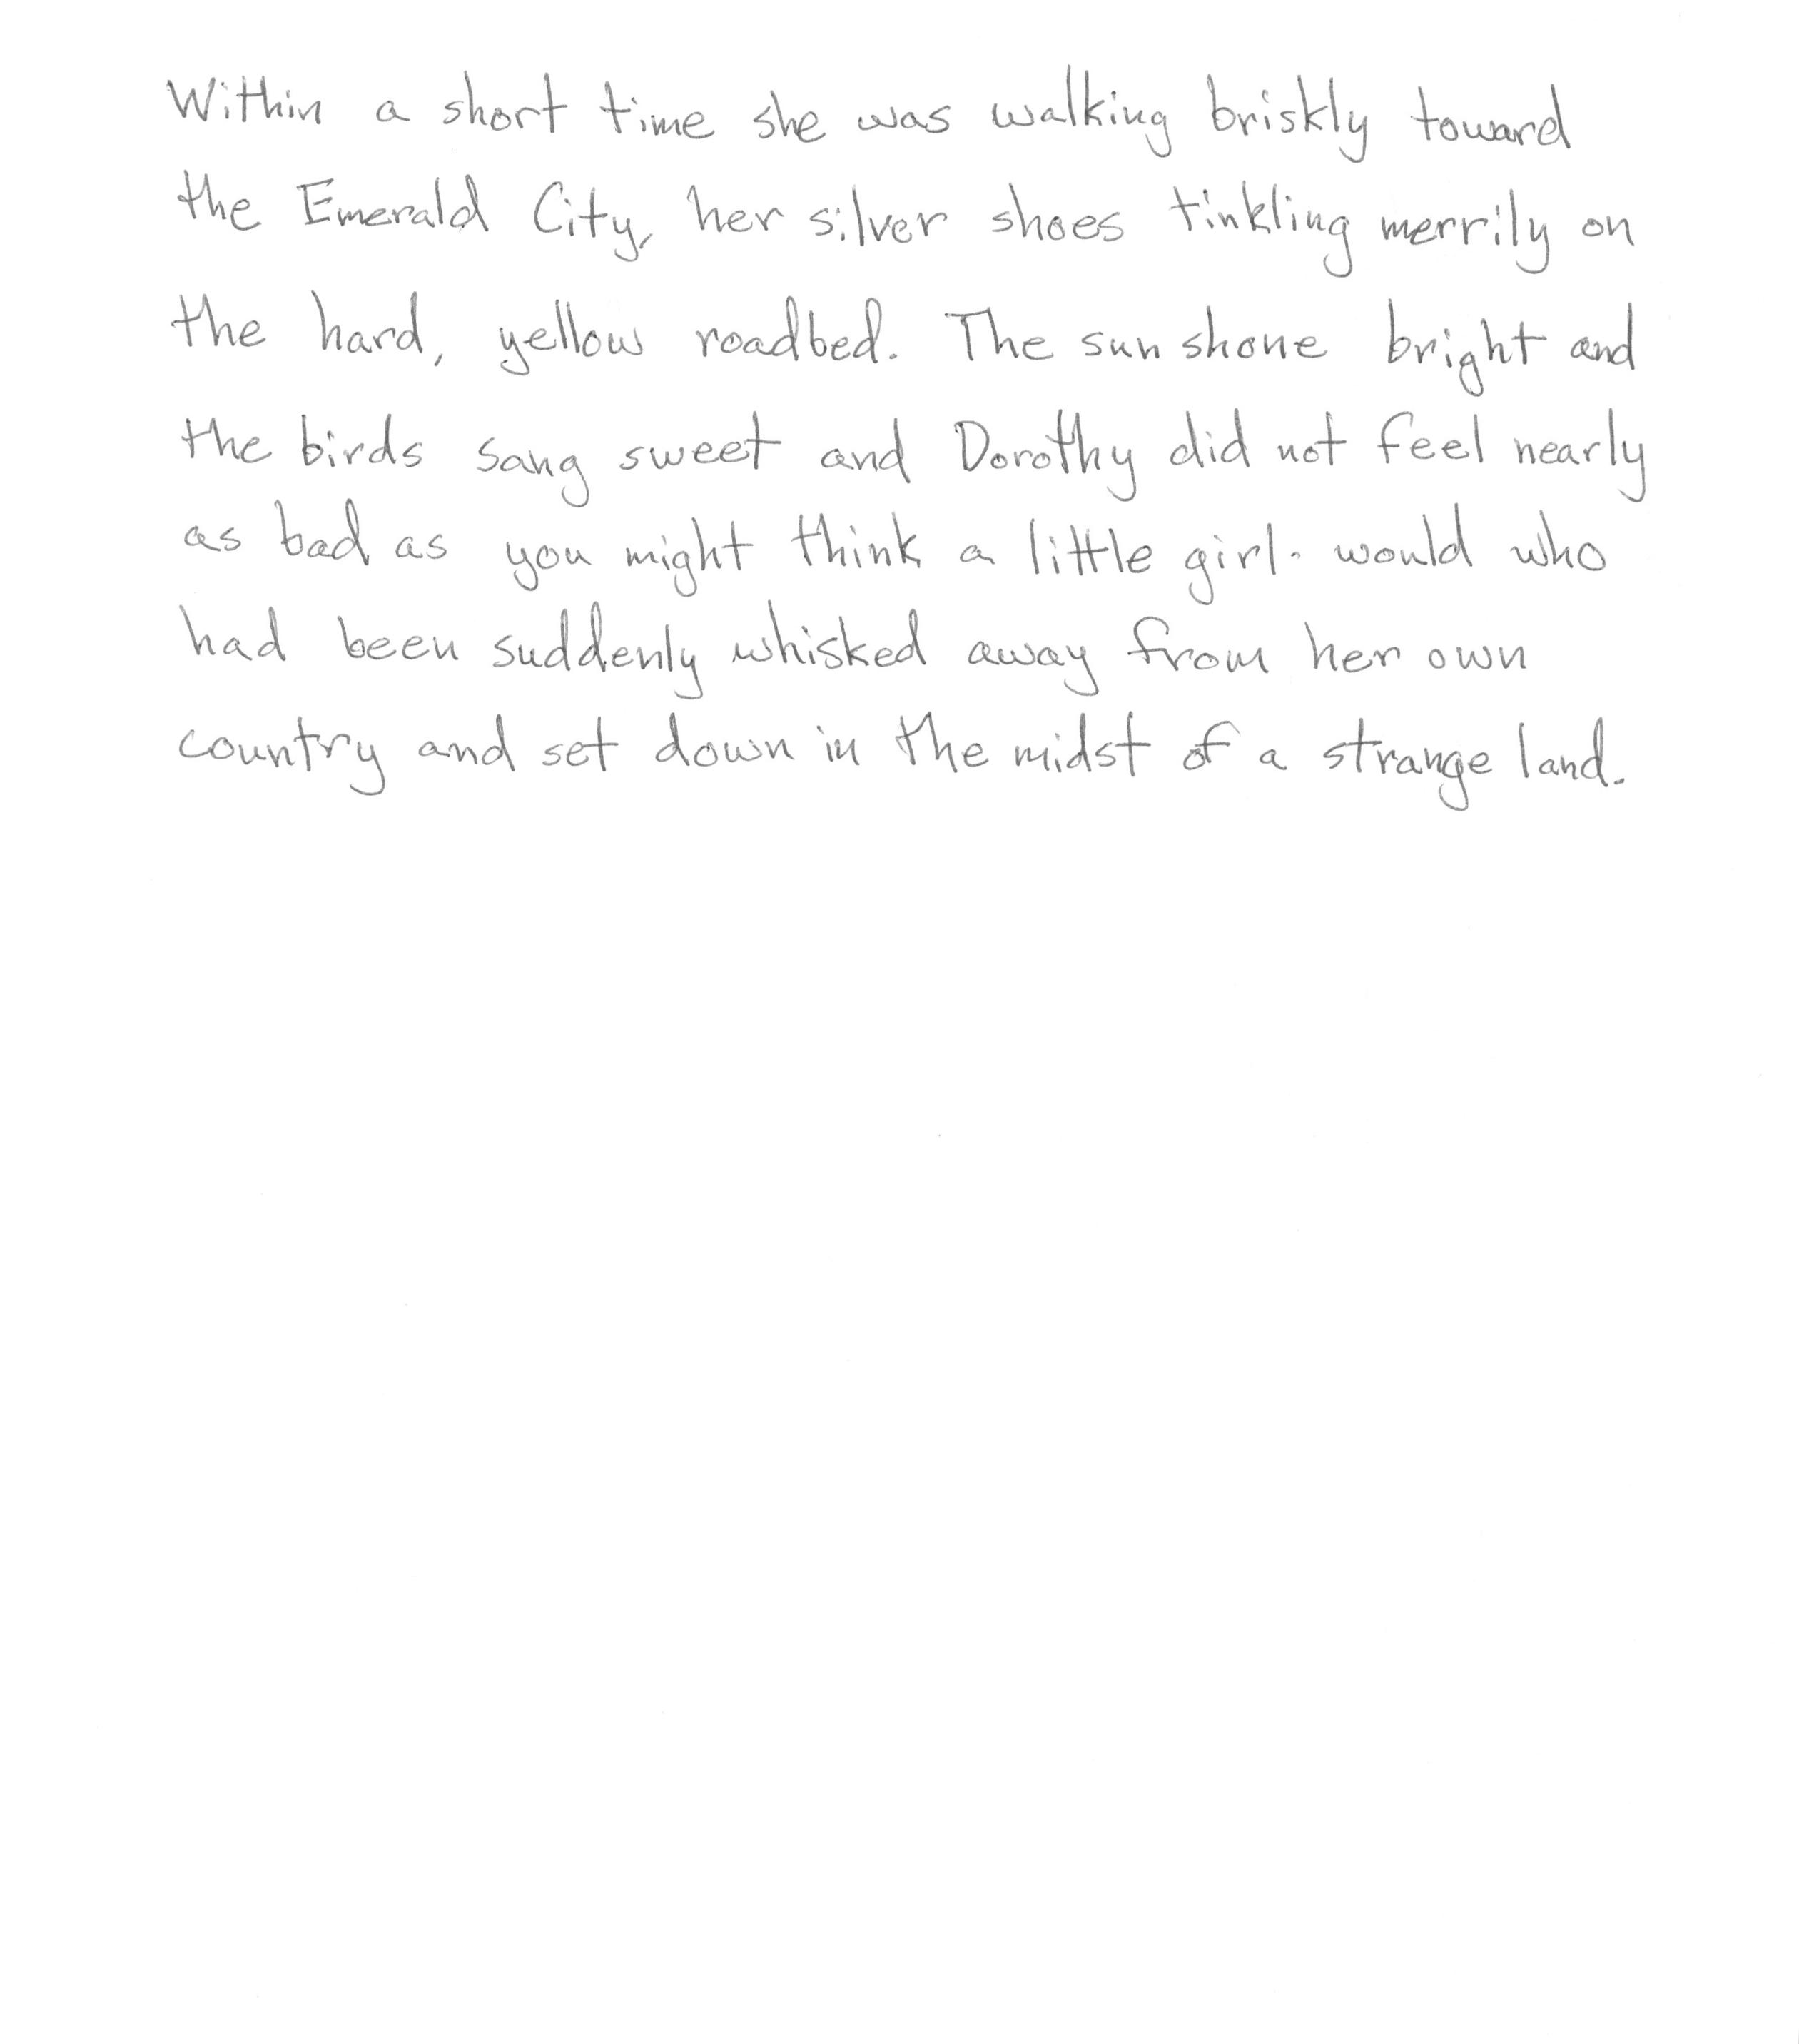 Within a short time she was walking briskly toward
the Emerald City, her silver shoes tinkling merrily on
the hard, yellow roadbed. The sun shone bright and
the birds sang sweet and Dorothy did not feel nearly
as bad as you might think a little girl. would who
had been suddenly whisked away from her own
country and set down in the midst of a strange land.